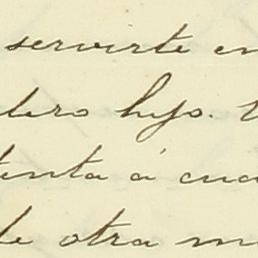 servirte en
dero hijo.
tenta á cua
de otra m